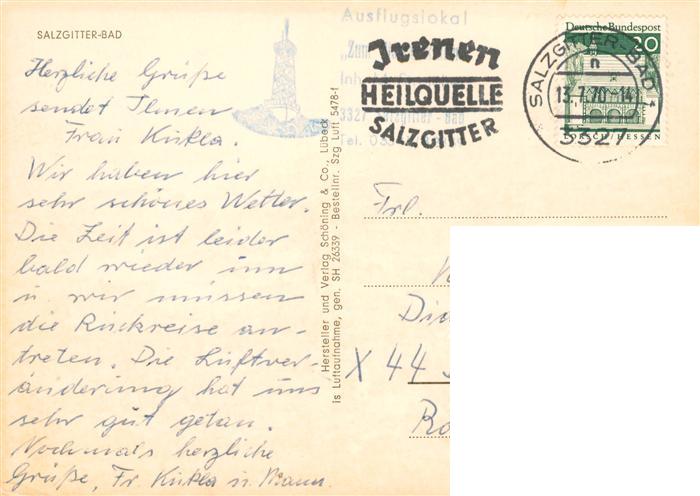 SALZGITTER-BAD
Herzliche Grüße
sendet Ihnen
Frau Kukla.
Wir haben hier
sehr schönes Wetter.
Die Zeit ist leider
bald wieder um
u. wir müssen
die Rückreise an-
treten. Die Luftver-
änderung hat uns
sehr gut getan.
Nochmals herzliche
Grüße, Fr. Kukla u. Mann.
Hersteller und Verlag Schöning & Co., Lübeck
is Luftaufnahme, gen. SH 26339 - Bestellnr. Szg Luft 5478-f
Ausflugslokal
"Zum
3327 Salzgitter - Bad
Tel.
Irenen
HEILQUELLE
SALZGITTER
SALZGITTER-BAD
n
13.7.70-14
3327
Deutsche Bundespost
20
LORSCH/HESSEN
Frl.
X 44